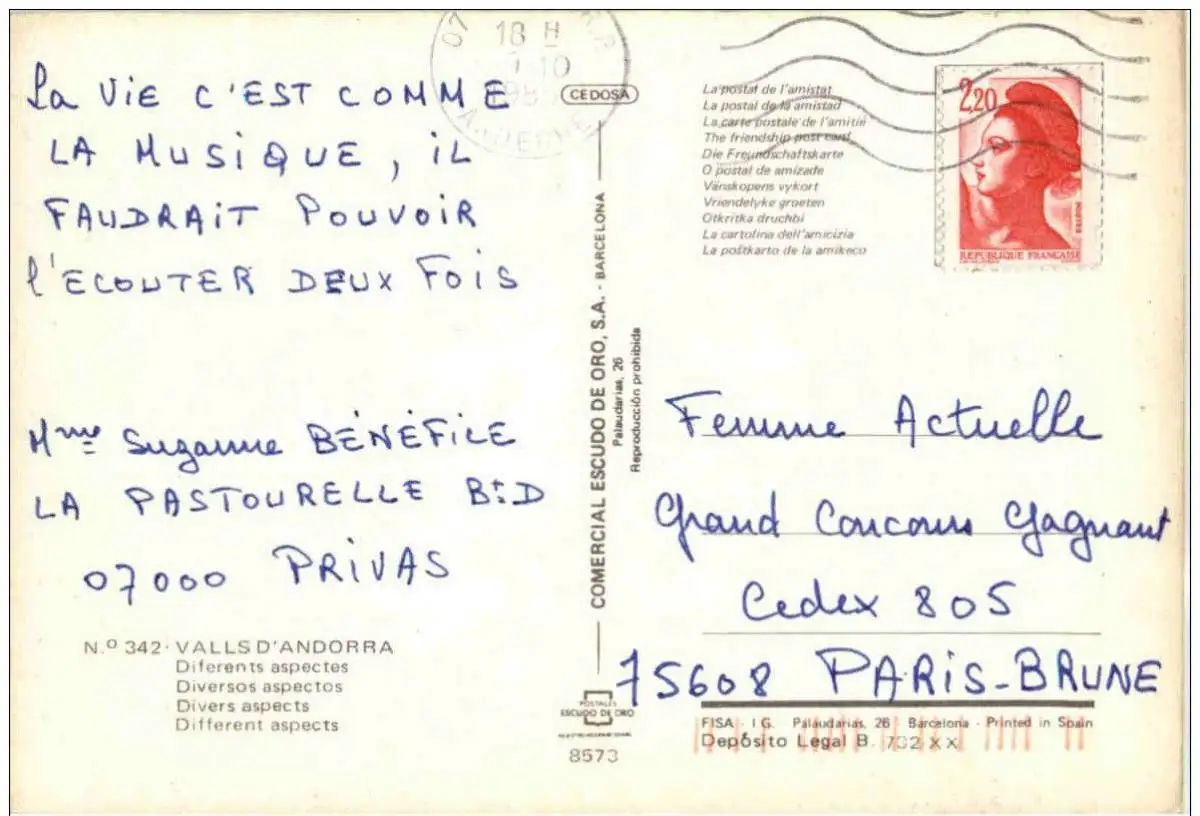 La ViE C'EST COMME
LA MUSiQUE, iL
FAUDRAiT POUVOiR
l'ECOUTER DEUX FOiS
Mme Suzanne BÉNÉFiCE
LA PASTOURELLE Bt D
07000 PRiVAS
N.º 342 · VALLS D'ANDORRA
Diferents aspectes
Diversos aspectos
Divers aspects
Different aspects
07
18 H
10
CEDOSA
COMERCIAL ESCUDO DE ORO, S.A. - BARCELONA
Palaudarias, 26
Reproducción prohibida
POSTALES
ESCUDO DE ORO
8573
La postal de l'amistat
La postal de la amistad
La carte postale de l'amitié
The friendship post card
Die Freundschaftskarte
O postal de amizade
Vänskopens vykort
Vriendelyke groeten
Otkritka druchbi
La cartolina dell'amicizia
La poŝtkarto de la amikeco
2,20
REPUBLIQUE FRANÇAISE
POSTES
Femme Actuelle
Grand Concours Gagnant
Cedex 805
75608 PARiS-BRUNE
FISA - I G. Palaudarias, 26 Barcelona - Printed in Spain
Depósito Legal B. 732 XX